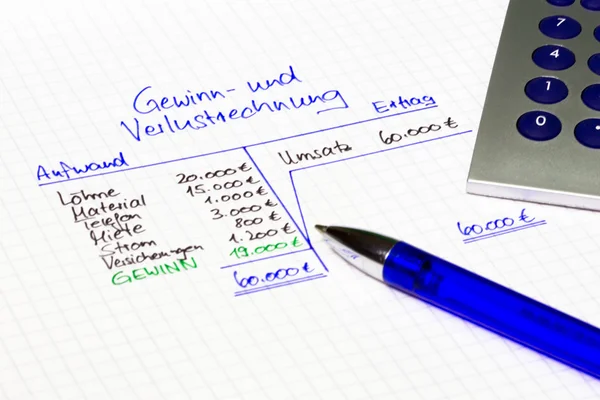 Gewinn- und
Verlustrechnung
Aufwand Ertrag
Löhne 20.000€ Umsatz 60.000€
Material 15.000€
Telefon 1.000€
Miete 3.000€
Strom 800€
Versicherungen 1.200€
GEWINN 19.000€
60.000€ 60.000€
7
4
1
0